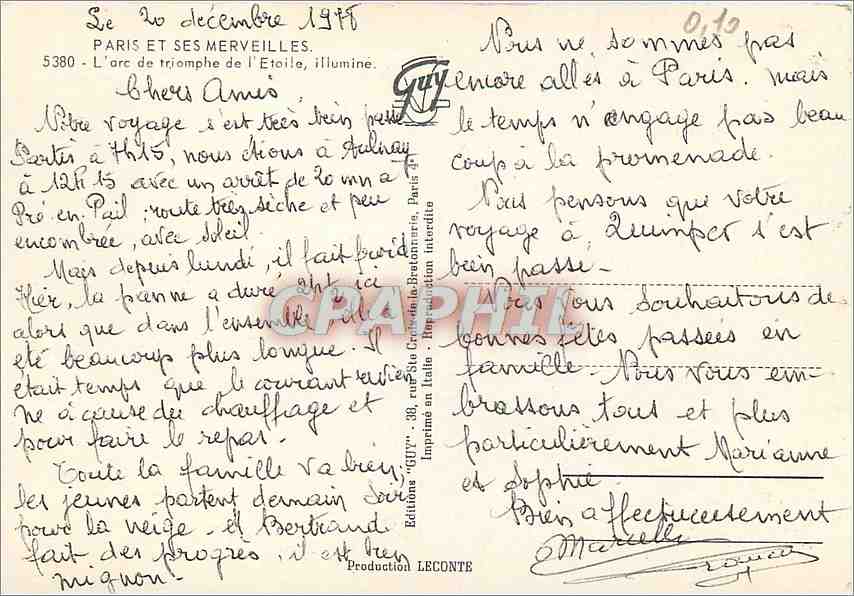 Le 20 décembre 1978
PARIS ET SES MERVEILLES.
5380 - L'arc de triomphe de l'Etoile, illuminé.
Chers Amis,
Notre voyage s'est très bien passé
Partis à 7h15, nous étions à Aulnay
à 12h15 avec un arrêt de 20 mn à
Pré en Pail; route très sèche et peu
encombrée, avec soleil.
Mais depuis lundi, il fait froid
Hier, la panne a duré 2h½ ici
alors que dans l'ensemble, elle a
été beaucoup plus longue. Il
était temps que le courant revien
ne à cause du chauffage et
pour faire le repas.
Toute la famille va bien;
les jeunes partent demain soir
pour la neige - et Bertrand
fait des progrès, il est bien
mignon -
Guy
Editions "GUY" - 38, rue Ste Croix de la Bretonnerie, Paris 4e
Imprimé en Italie - Reproduction interdite
CPAPHIL
Production LECONTE
0,10
Nous ne sommes pas
encore allés à Paris. mais
le temps n'engage pas beau
coup à la promenade.
Nous pensons que votre
voyage à Quimper s'est
bien passé -
Nous vous souhaitons de
bonnes fêtes passées en
famille. Nous vous em-
brassons tous et plus
particulièrement Marianne
et Sophie.
Bien affectueusement
Marcelle